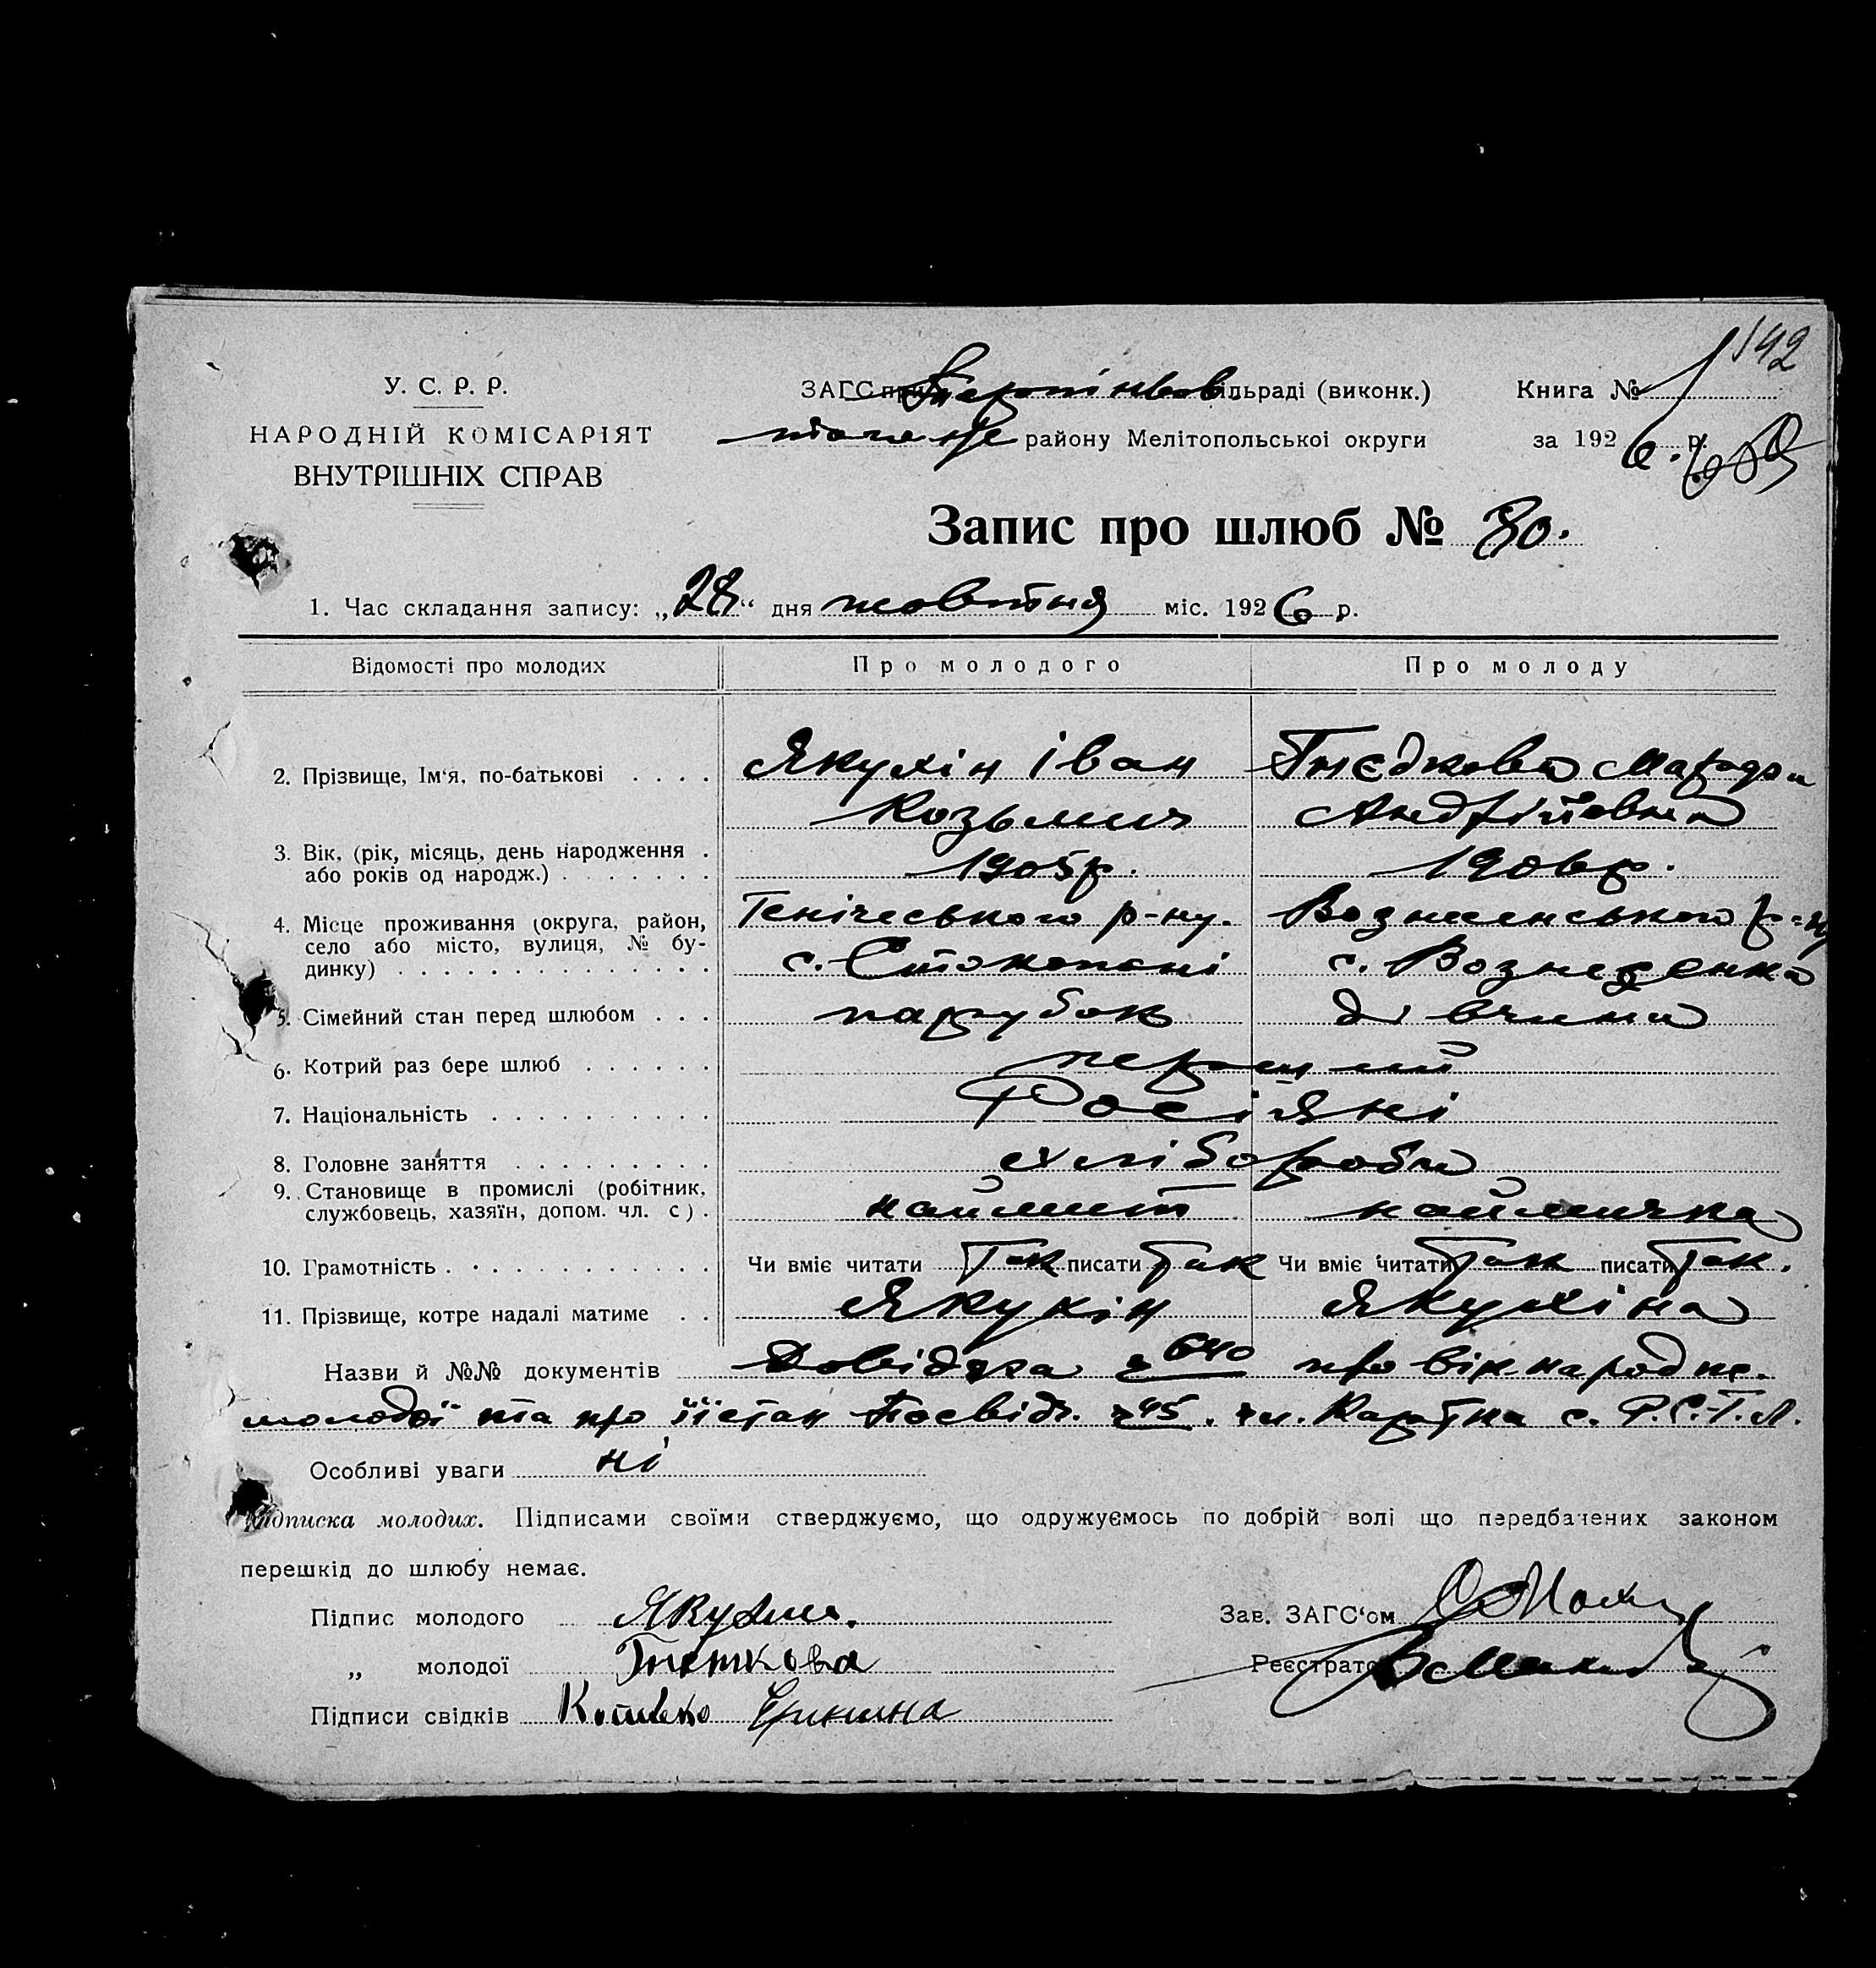 192
У. С. Р. Р.
ЗАГС при Терпіньов. сільраді (виконк.) Книга № 1
НАРОДНІЙ КОМІСАРІЯТ
району Мелітопольської округи за 1926 р.
ВНУТРІШНІХ СПРАВ
Запис про шлюб № 80.
1. Час складання запису: „28“ дня жовтня міс. 1926 р.
Відомості про молодих Про молодого Про молоду
2. Прізвище, Ім‘я, по-батькові . . . . Якухін Іван Гнєдкова
Козьмич Андріївна
3. Вік, (рік, місяць, день народження . 1905р. 1906р.
або років од народж.) . . . . . . .
4. Місце проживання (округа, район, Генічеського р-ну.
село або місто, вулиця, № бу- с. Стокопані с. Вознесенка
динку) . . . . . . . . . . . . . .
5. Сімейний стан перед шлюбом . . . парубок дівчина
6. Котрий раз бере шлюб . . . . . . перший
7. Національність . . . . . . . . . . Росіяні
8. Головне заняття . . . . . . . . . хлібороби
9. Становище в промислі (робітник, наймит наймичка
службовець, хазяїн, допом. чл. с) .
10. Грамотність . . . . . . . . . . . Чи вміє читати Так писати Так Чи вміє читати Так писати Так.
11. Прізвище, котре надалі матиме . . Якухін Якухіна
Назви й №№ документів Довідка № 640 про вік народже.
молодої та про її стан Посвідч. № 45. чл. с. Р.С.-Г.Л.
Особливі уваги ні
Підписка молодих. Підписами своїми стверджуємо, що одружуємось по добрій волі що передбачених законом
перешкід до шлюбу немає.
Підпис молодого Якухин. Зав. ЗАГС‘ом
„ молодої Гнеткова Реєстратор
Підписи свідків